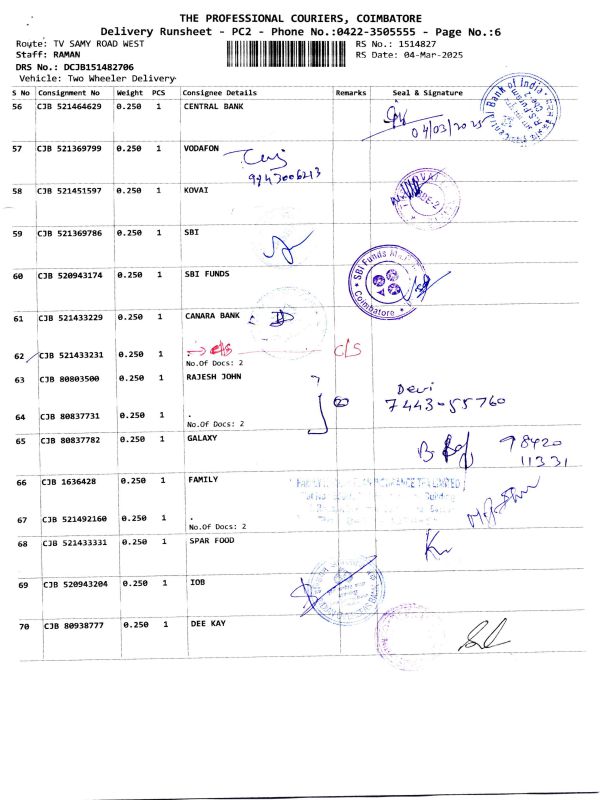 THE PROFESSIONAL COURIERS, COIMBATORE
Delivery Runsheet - PC2 - Phone No.:0422-3505555 - Page No.:6
Route: TV SAMY ROAD WEST RS No.: 1514827
Staff: RAMAN RS Date: 04-Mar-2025
DRS No.: DCJB151482706
Vehicle: Two Wheeler Delivery
S No Consignment No Weight PCS Consignee Details Remarks Seal & Signature
56 CJB 521464629 0.250 1 CENTRAL BANK
Central Bank of India
R.S.Puram
04/03/2025
57 CJB 521369799 0.250 1 VODAFON
58 CJB 521451597 0.250 1 KOVAI
59 CJB 521369786 0.250 1 SBI
60 CJB 520943174 0.250 1 SBI FUNDS
SBI Funds
Coimbatore
61 CJB 521433229 0.250 1 CANARA BANK
62 CJB 521433231 0.250 1 . C/S
No.Of Docs: 2
63 CJB 80803500 0.250 1 RAJESH JOHN
Devi
7443-55760
64 CJB 80837731 0.250 1 .
No.Of Docs: 2
65 CJB 80837782 0.250 1 GALAXY
98420
11331
66 CJB 1636428 0.250 1 FAMILY
67 CJB 521492160 0.250 1 .
No.Of Docs: 2
68 CJB 521433331 0.250 1 SPAR FOOD
69 CJB 520943204 0.250 1 IOB
70 CJB 80938777 0.250 1 DEE KAY